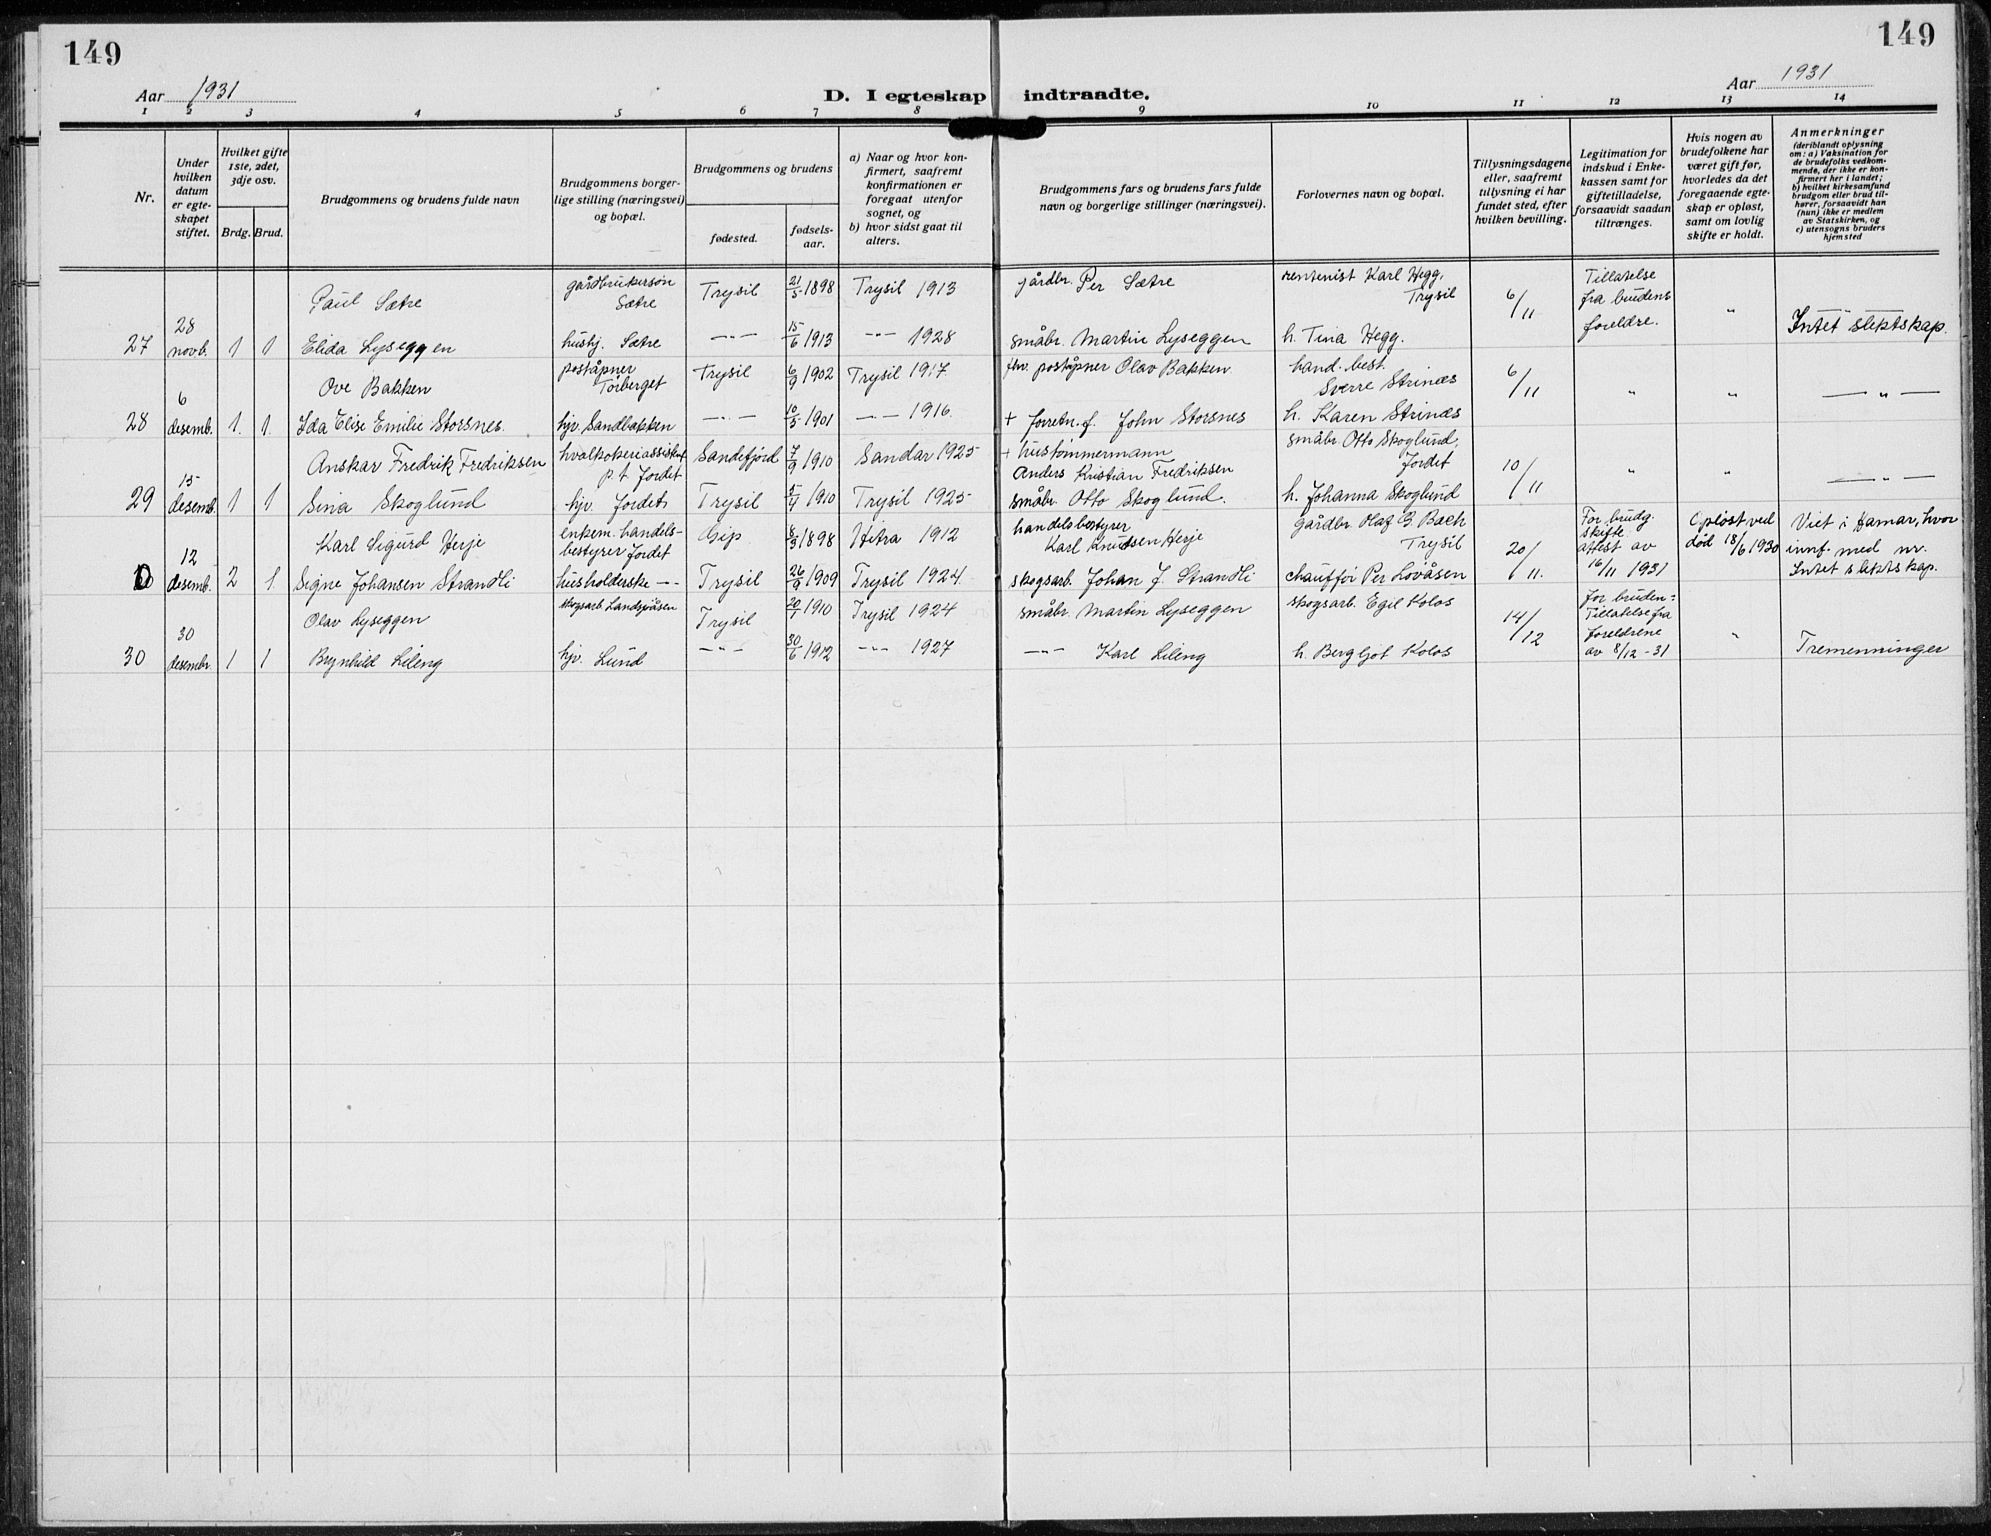 149
149
Aar 1931
D. I egteskap indtraadte.
Aar 1931
1 2 3 4 5 6 7 8 9 10 11 12 13 14
Nr.
Under hvilken datum er egteskapet stiftet.
Hvilket gifte 1ste, 2det, 3dje osv.
Brdg. Brud.
Brudgommens og brudens fulde navn
Brudgommens borgerlige stilling (næringsvei) og bopæl.
Brudgommens og brudens
fødested.
fødselsaar.
a) Naar og hvor konfirmert, saafremt konfirmationen er foregaat utenfor sognet, og
b) hvor sidst gaat til alters.
Brudgommens fars og brudens fars fulde navn og borgerlige stillinger (næringsvei).
Forlovernes navn og bopæl.
Tillysningsdagene eller, saafremt tillysning ei har fundet sted, efter hvilken bevilling.
Legitimation for indskud i Enkekassen samt for giftetilladelse, forsaavidt saadan tiltrænges.
Hvis nogen av brudefolkene har været gift før, hvorledes da det foregaaende egteskap er opløst, samt om lovlig skifte er holdt.
Anmerkninger
(deriblandt oplysning om: a) Vaksination for de brudefolks vedkommende, der ikke er konfirmert her i landet;
b) hvilket kirkesamfund brudgom eller brud tilhører, forsaavidt han (hun) ikke er medlem av Statskirken, og
c) utensogns bruders hjemsted
Paul Sætre gårdbrukersøn Sætre Trysil 21/5 1898 Trysil 1913 gårdbr. Per Sætre rentenist Karl Hegg, Trysil 6/11 Tillatelse fra brudens foreldre. " Intet slektskap.
27 28 novb. 1 1 Elida Lyseggen hushj. Sætre -"- 15/6 1913 -"- 1928 småbr. Martin Lyseggen h. Tina Hegg.
Ove Bakken poståpner Törberget Trysil 6/9 1902 Trysil 1917 fhv. poståpner Olav Bakken hand. best. Sverre Strinæs 6/11 " " -"-
28 6 desemb. 1. 1. Ida Elise Emilie Storsnes. hjv. Sandbakken -"- 10/5 1901 -"- 1916. + forretn.f. John Storsnes h. Karen Strinæs
Anskar Fredrik Fredriksen hvalkokeriassistent p.t. Jordet Sandefjord 7/9 1910 Sandar 1925 + hustømmermann Anders Kristian Fredriksen småbr. Otto Skoglund, Jordet 10/11 " " -"-
29 15 desemb. 1 1 Sina Skoglund hjv. Jordet Trysil 5/4 1910 Trysil 1925 småbr. Otto Skoglund. h. Johanna Skoglund
Karl Sigurd Herje enkem. handelsbestyrer Jordet 1898 Hitra 1912 handelsbestyrer Karl Knudsen Herje gårdbr. Olaf G. Bach Trysil 20/11. For brudg. skifteattest av 16/11 1931 Opløst ved død 18/6 1930 Viet i Hamar, hvor innf. med nr. Intet slektskap.
12 desemb. 2 1. Signe Johansen Strandli husholderske -"- Trysil 26/9 1909 Trysil 1924 skogsarb. Johan J. Strandli chauffør Per Lovåsen
Olav Lyseggen skogsarb. Landsjøåsen Trysil 20/7 1910 Trysil 1924 småbr. Martin Lyseggen skogsarb. Egil Kolos 14/12 for bruden = Tillatelse fra foreldrene av 8/12 - 31 " Tremenninger
30 30 desembr. 1 1 Brynhild Lileng hjv. Lund -"- 30/6 1912 -"- 1927 -"- Karl Lileng h. Bergljot Kolos